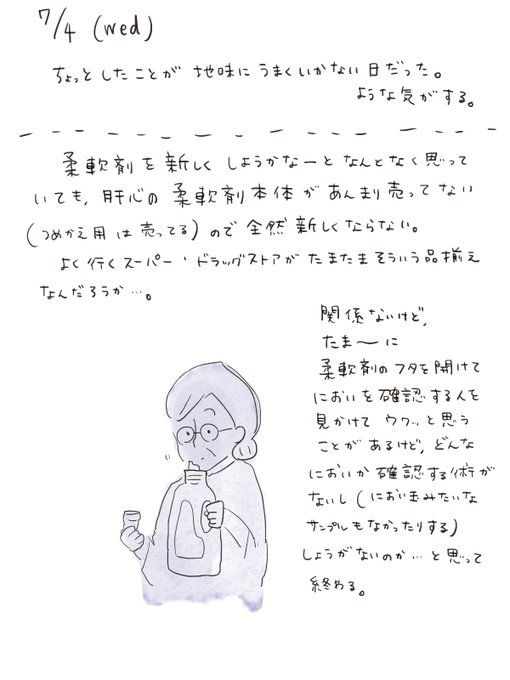 7/4 (wed)
ちょっとしたことが 地味にうまくいかない日だった。
ような気がする。
柔軟剤を新しくしようかなーとなんとなく思って
いても、肝心の柔軟剤本体があんまり売ってない
(つめかえ用は売ってる)ので全然新しくならない。
よく行くスーパー・ドラッグストアがたまたまそういう品揃え
なんだろうか…。
関係ないけど、
たま〜に
柔軟剤のフタを開けて
においを確認する人を
見かけてウワッと思う
ことがあるけど、どんな
においか確認する術が
ないし(におい玉みたいな
サンプルもなかったりする)
しょうがないのか…と思って
終わる。